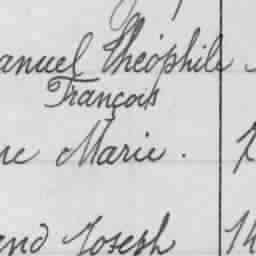 anuel Théophile
François
ne Marie.
and Joseph 14